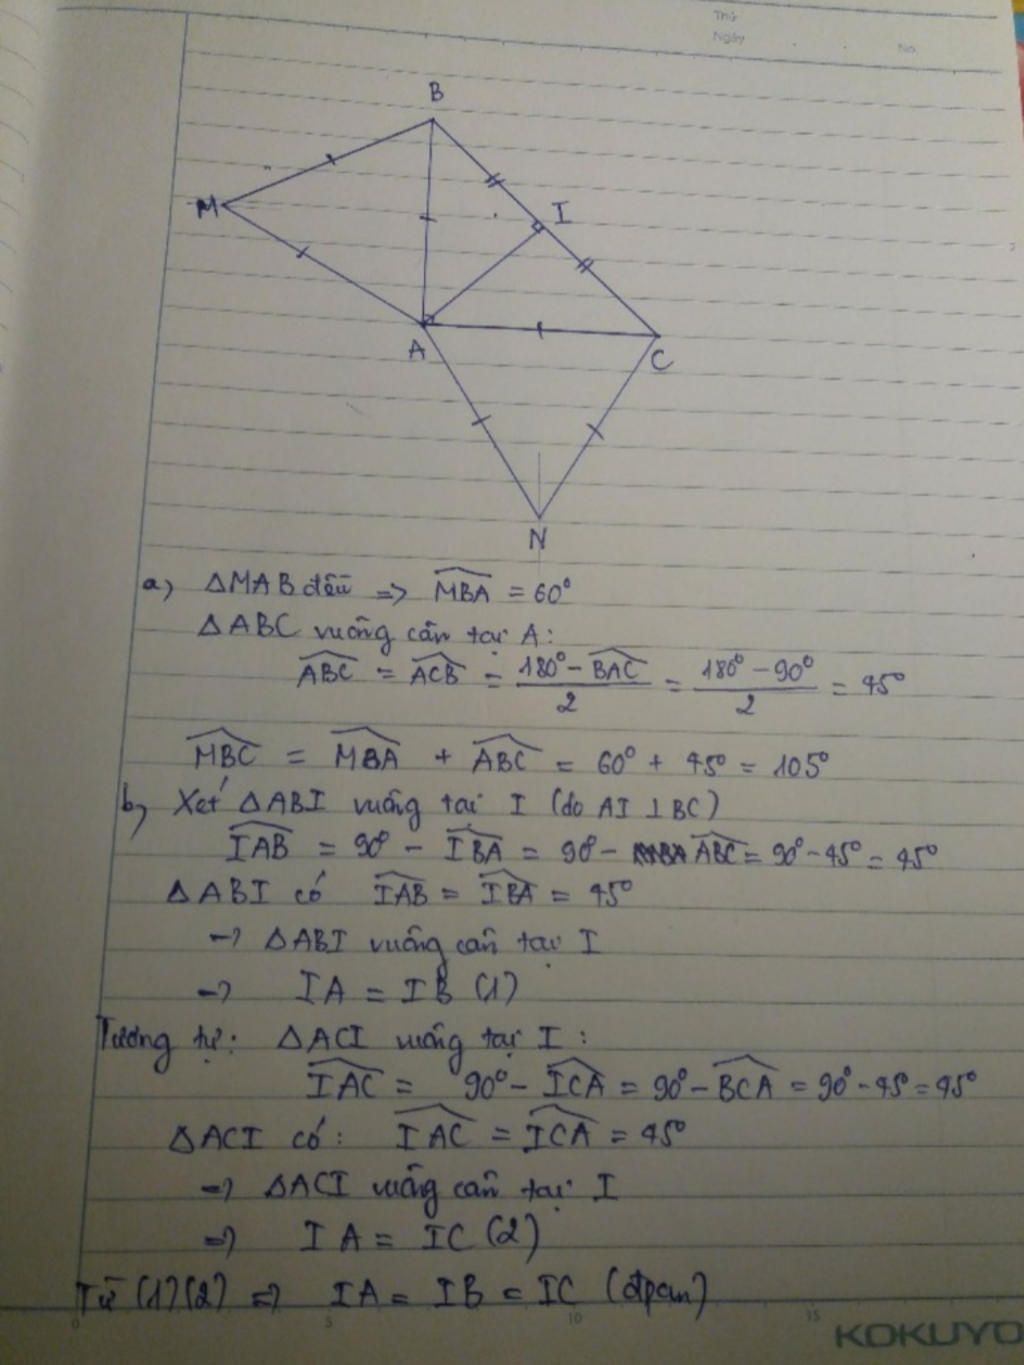 Thứ
Ngày . . No.
B
M
I
A
C
N
a) ΔMAB đều => \widehat{MBA} = 60°
ΔABC vuông cân tại A:
\widehat{ABC} = \widehat{ACB} = \frac{180° - \widehat{BAC}}{2} = \frac{180° - 90°}{2} = 45°
\widehat{MBC} = \widehat{MBA} + \widehat{ABC} = 60° + 45° = 105°
b) Xét ΔABI vuông tại I (do AI ⊥ BC)
\widehat{IAB} = 90° - \widehat{IBA} = 90° - \widehat{ABC} = 90° - 45° = 45°
ΔABI có \widehat{IAB} = \widehat{IBA} = 45°
=> ΔABI vuông cân tại I
=> IA = IB (1)
Tương tự: ΔACI vuông tại I:
\widehat{IAC} = 90° - \widehat{ICA} = 90° - \widehat{BCA} = 90° - 45° = 45°
ΔACI có: \widehat{IAC} = \widehat{ICA} = 45°
=> ΔACI vuông cân tại I
=> IA = IC (2)
Từ (1)(2) => IA = IB = IC (đpcm)
0 5 10 15
KOKUYO